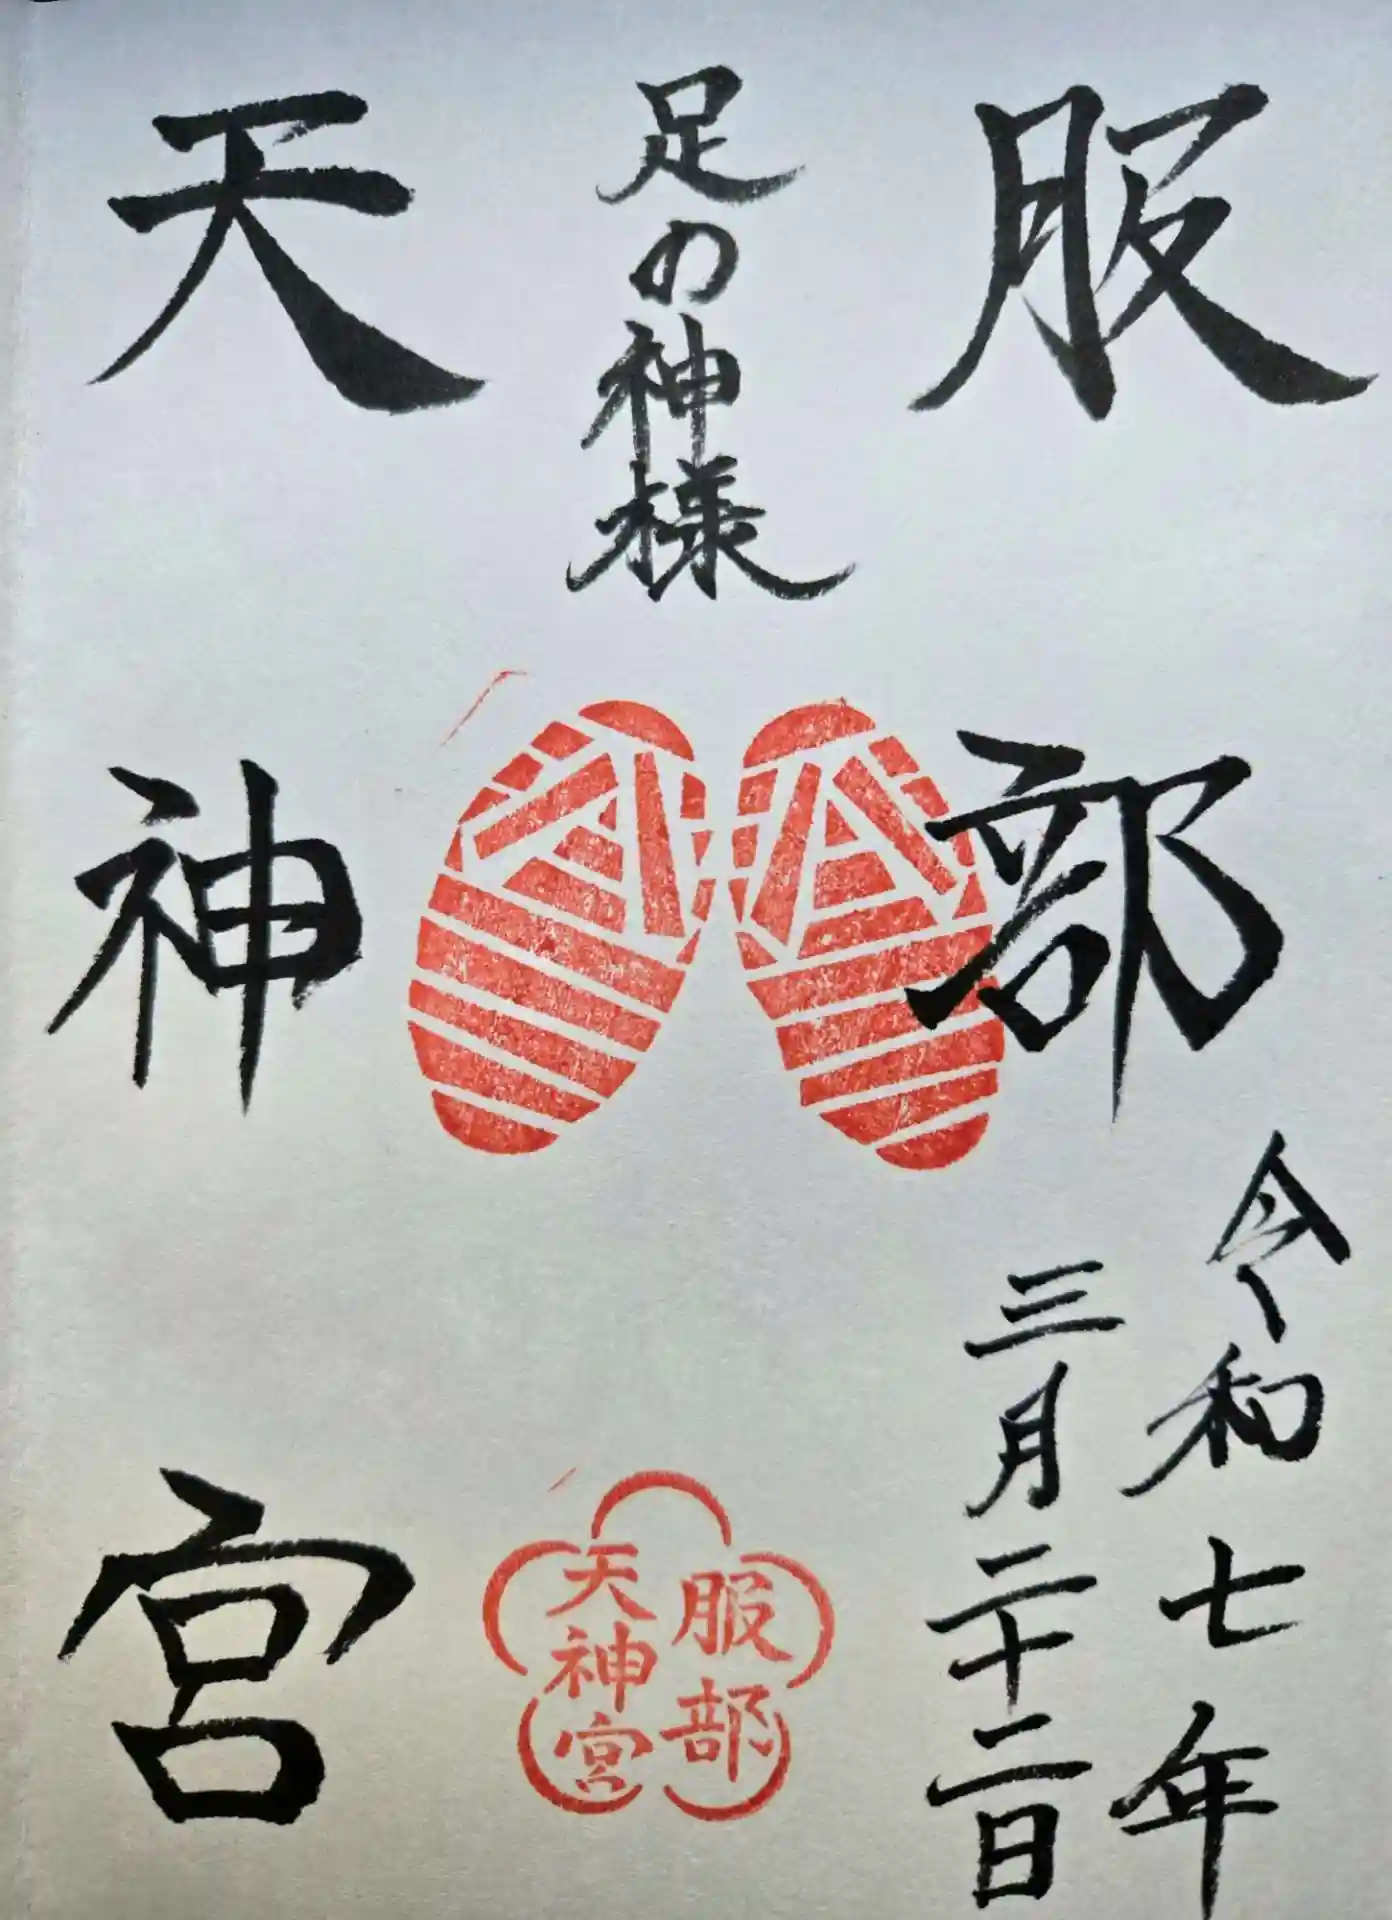 服部
令和七年
三月二十二日
足の神様
天神宮
服部
天神宮